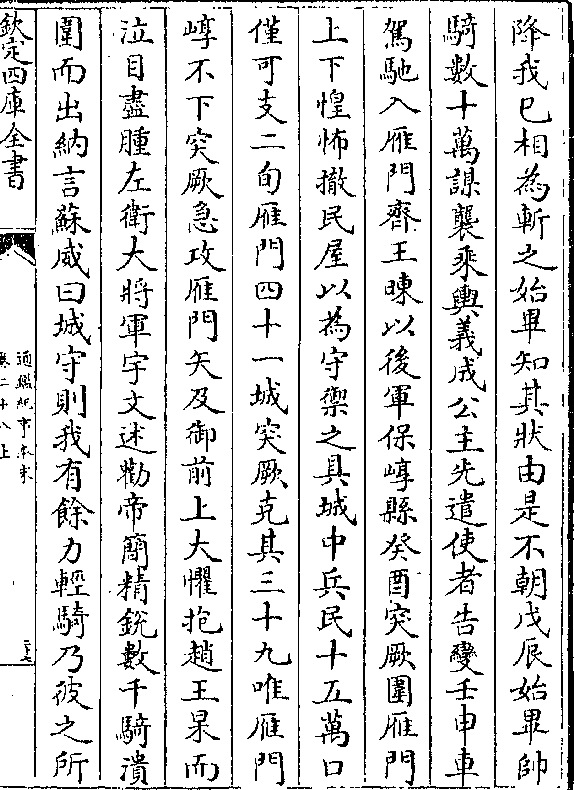 降我已相為斬之始畢知其狀由是不朝戊辰始畢帥
騎數十萬謀襲乘輿義成公主先遣使者告變壬申車
駕馳入雁門齊王暕以後軍保崞縣癸酉突厥圍雁門
上下惶怖撤民屋以為守禦之具城中兵民十五萬口
僅可支二旬雁門四十一城突厥克其三十九唯雁門
崞不下突厥急攻雁門矢及御前上大懼抱趙王杲而
泣目盡腫左衛大將軍宇文述勸帝簡精銳數千騎潰
圍而出納言蘇威曰城守則我有餘力輕騎乃彼之所
欽定四庫全書
通鑑紀事本末
卷二十八上